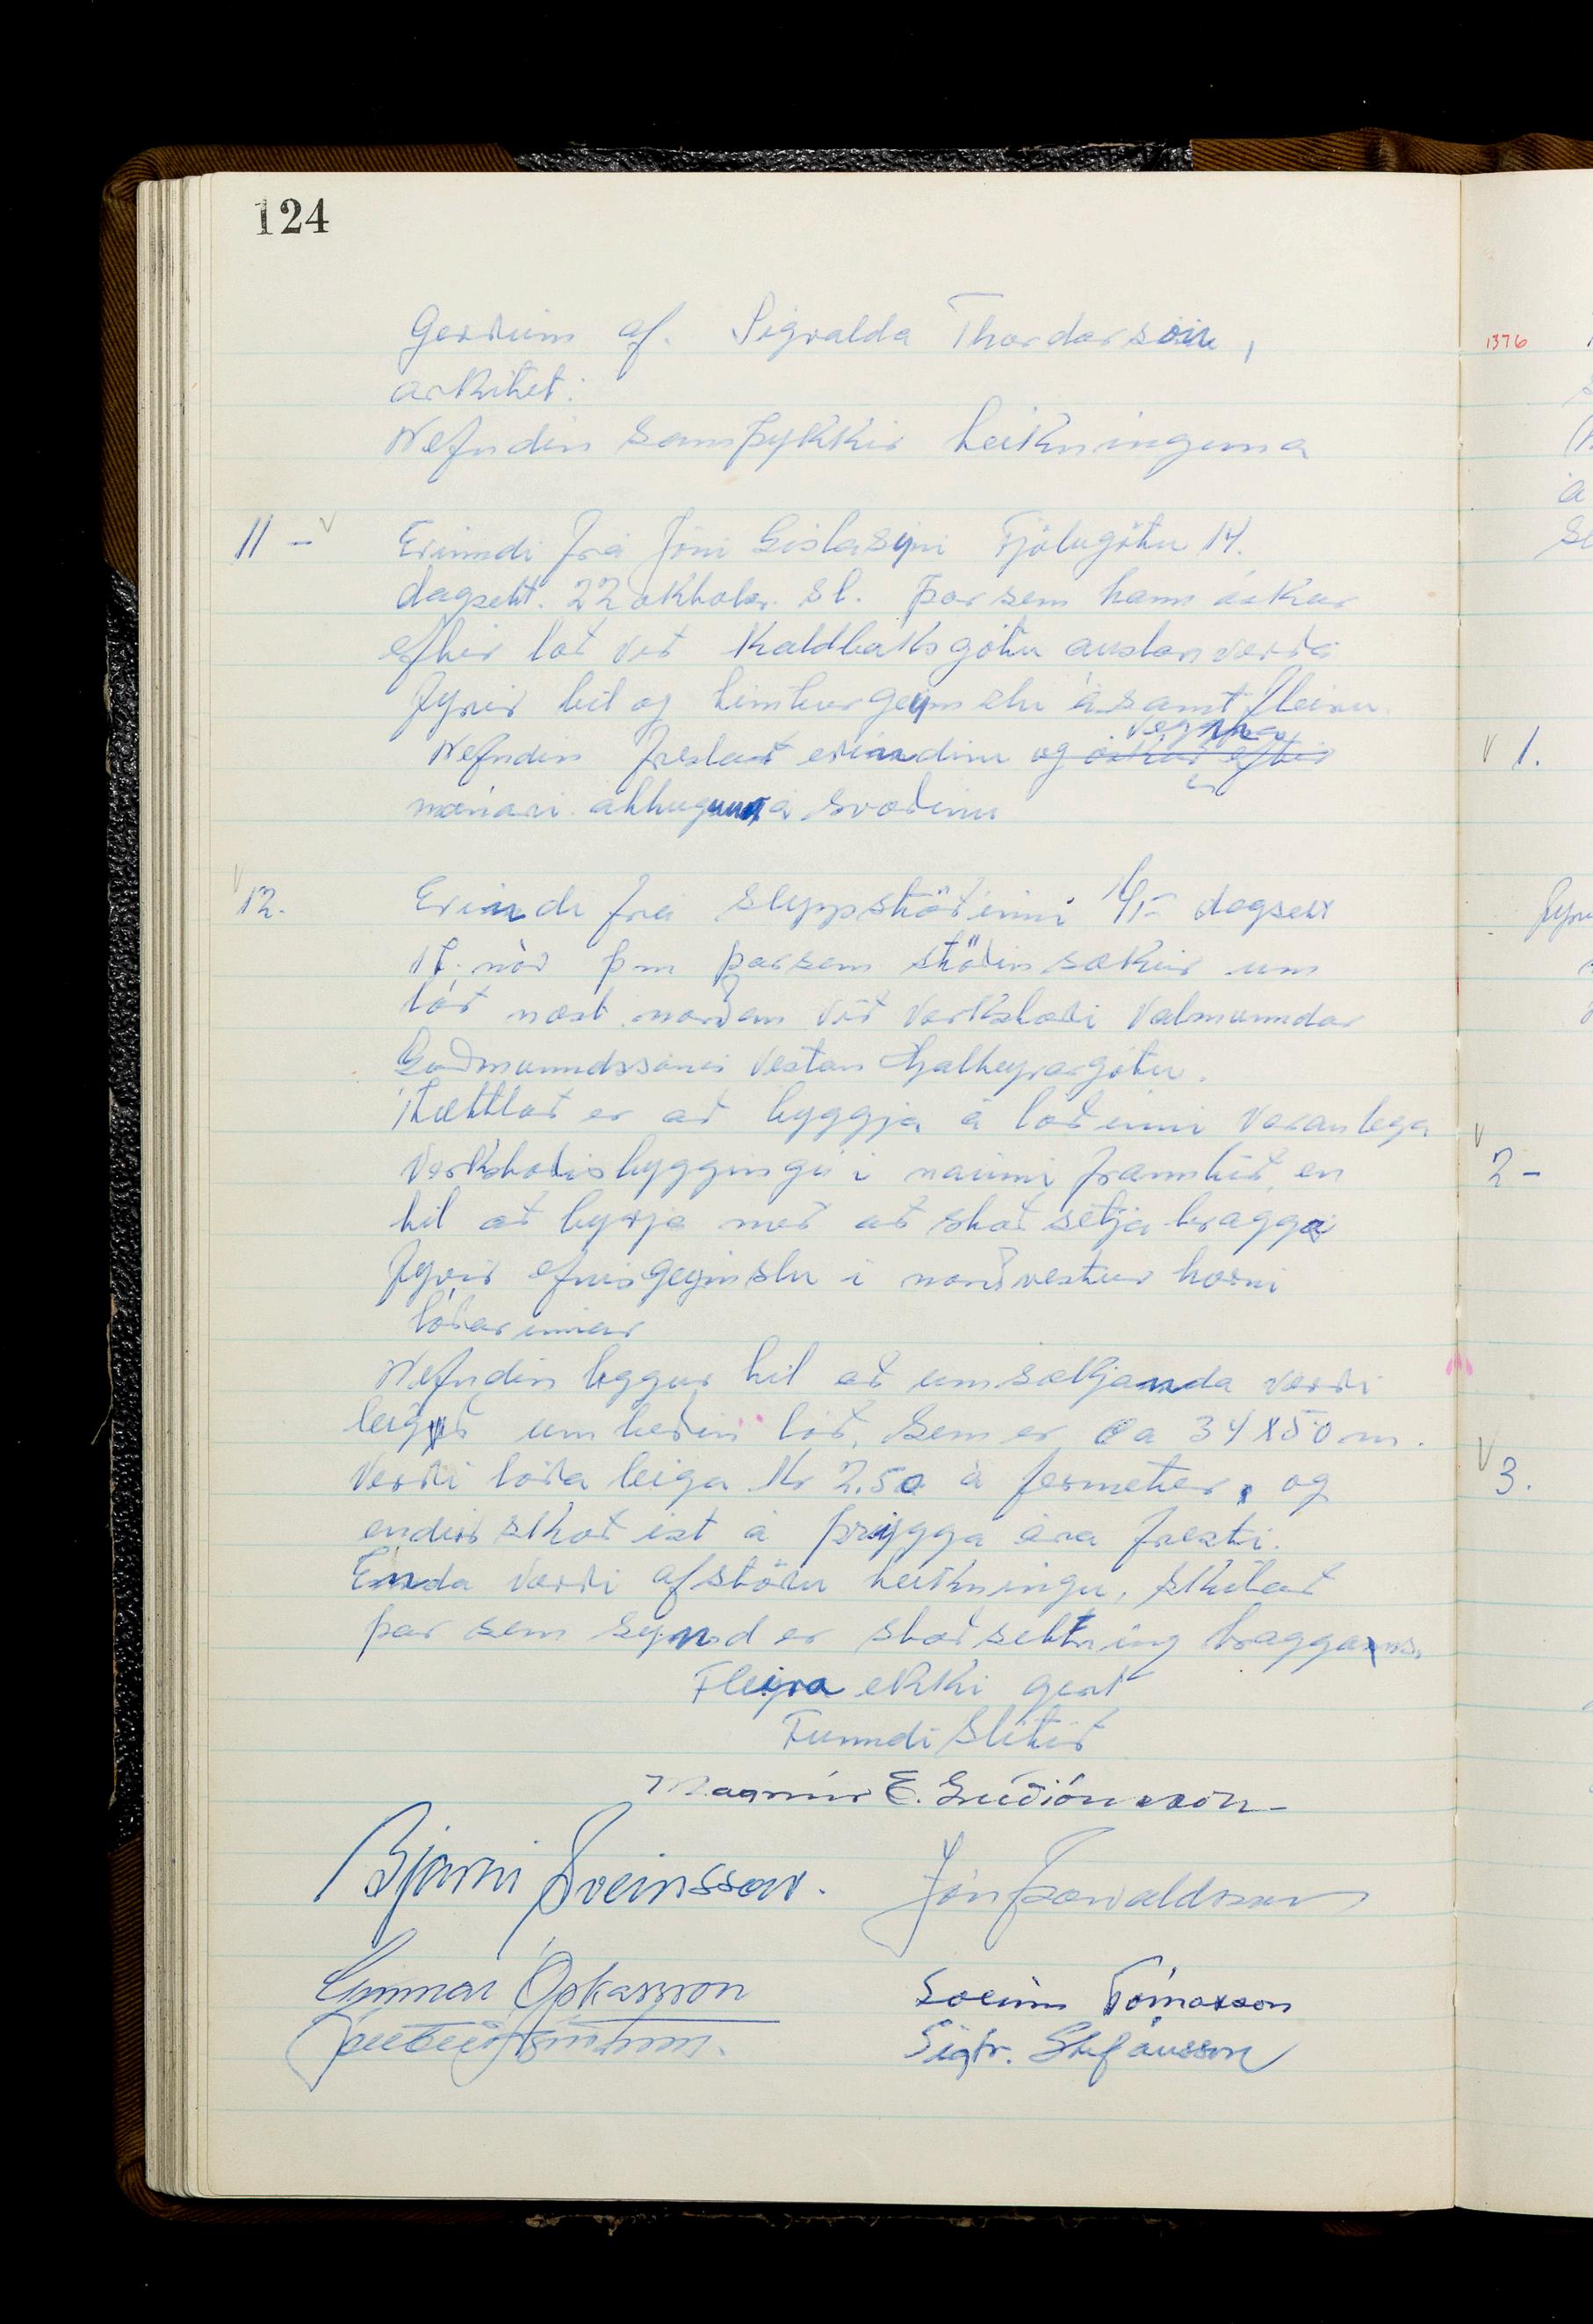 124
Gerðum af. Sigvalda Thordarson,
arkitet.
Nefndin samþykkir teikninguna
11 - Erinndi frá Jóni Gislasyni Fjólugötu 14.
dagsett. 22 oktober. sl. þar sem hann óskar
eftir lóð við Kaldbaksgötu austanverða
fyrir bíl og timburgeymslu ásamt fleiru.
Nefnden frestað erindinu og óskar eftir vegna
nánari athugunar á svæðinu
12. Erindi frá Slippstöðinni h/f- dagsett
17. nóv þ.m þar sem stöðin sækir um
lóð næst norðan við verkstæði Valmunndar
Guðmunndssonar vestan Hjalteyrargötu.
Ættlað er að byggja á lóðinni varanlega
verkstæðisbyggingu í náinni framtíð, en
til að byrja með að staðsetja bragga
fyrir efnisgeymslu í norðvestur horni
lóðarinnar
Nefndin leggur til að umsækjanda verði
leigð umbeðin lóð, sem er ca 34x50 m.
Verði lóða leiga Kr 2.50 á fermeter, og
endirskoðist á þriggja ára fresti.
Enda verði afstöðu teikningu, skilað
þar sem synd er staðsettning braggans.
Fleira ekki gert
Funndi slitið
Magnús E. Guðjónsson-
Bjarni Sveinsson. Jón Þorvaldsson
Gunnar Óskarsson Sveinn Tómasson
Sigtr. Stefánsson
1376
1.
2-
3.